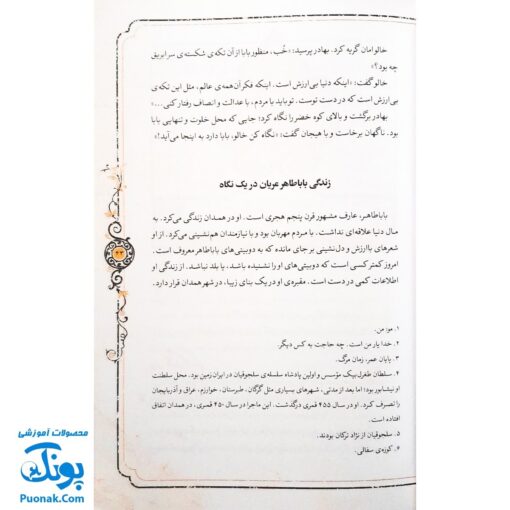 خالو امان گریه کرد. بهادر پرسید: «خُب، منظور بابا از آن تکه‌ی شکسته‌ی سر ابریق
چه بود؟»
خالو گفت: «اینکه دنیا بی‌ارزش است. اینکه فکر آن همه‌ی عالم، مثل این تکه‌ی
بی‌ارزش است که در دست توست. تو باید با مردم، با عدالت و انصاف رفتار کنی...»
بهادر برگشت و بالای کوه خضر را نگاه کرد؛ جایی که محل خلوت و تنهایی بابا
بود. ناگهان برخاست و با هیجان گفت: «نگاه کن خالو، بابا دارد به اینجا می‌آید!»
زندگی باباطاهر عریان در یک نگاه
باباطاهر، عارف مشهور قرن پنجم هجری است. او در همدان زندگی می‌کرد. به
مال دنیا علاقه‌ای نداشت. با مردم مهربان بود و با نیازمندان هم‌نشینی می‌کرد. از او
شعرهای باارزش و دل‌نشینی بر جای مانده که به دوبیتی‌های باباطاهر معروف است.
امروز کمتر کسی است که دوبیتی‌های او را نشنیده باشد، یا بلد نباشد. از زندگی او
اطلاعات کمی در دست است. مقبره‌ی او در یک بنای زیبا، در شهر همدان قرار دارد.
۴۳
۱. مو: من.
۲. خدا یار من است. چه حاجت به کس دیگر.
۳. پایان عمر، زمان مرگ.
۴. سلطان طغرل‌بیک مؤسس و اولین پادشاه سلسله‌ی سلجوقیان در ایران‌زمین بود. محل سلطنت
او نیشابور بود؛ اما بعد از مدتی، شهرهای بسیاری مثل گرگان، طبرستان، خوارزم، عراق و آذربایجان
را تصرف کرد. او در سال ۴۵۵ قمری درگذشت. این ماجرا در سال ۴۵۰ قمری، در همدان اتفاق
افتاده است.
۵. سلجوقیان از نژاد ترکان بودند.
۶. کوزه‌ی سفالی.
محصولات آموزشی
پونک
Puonak.Com